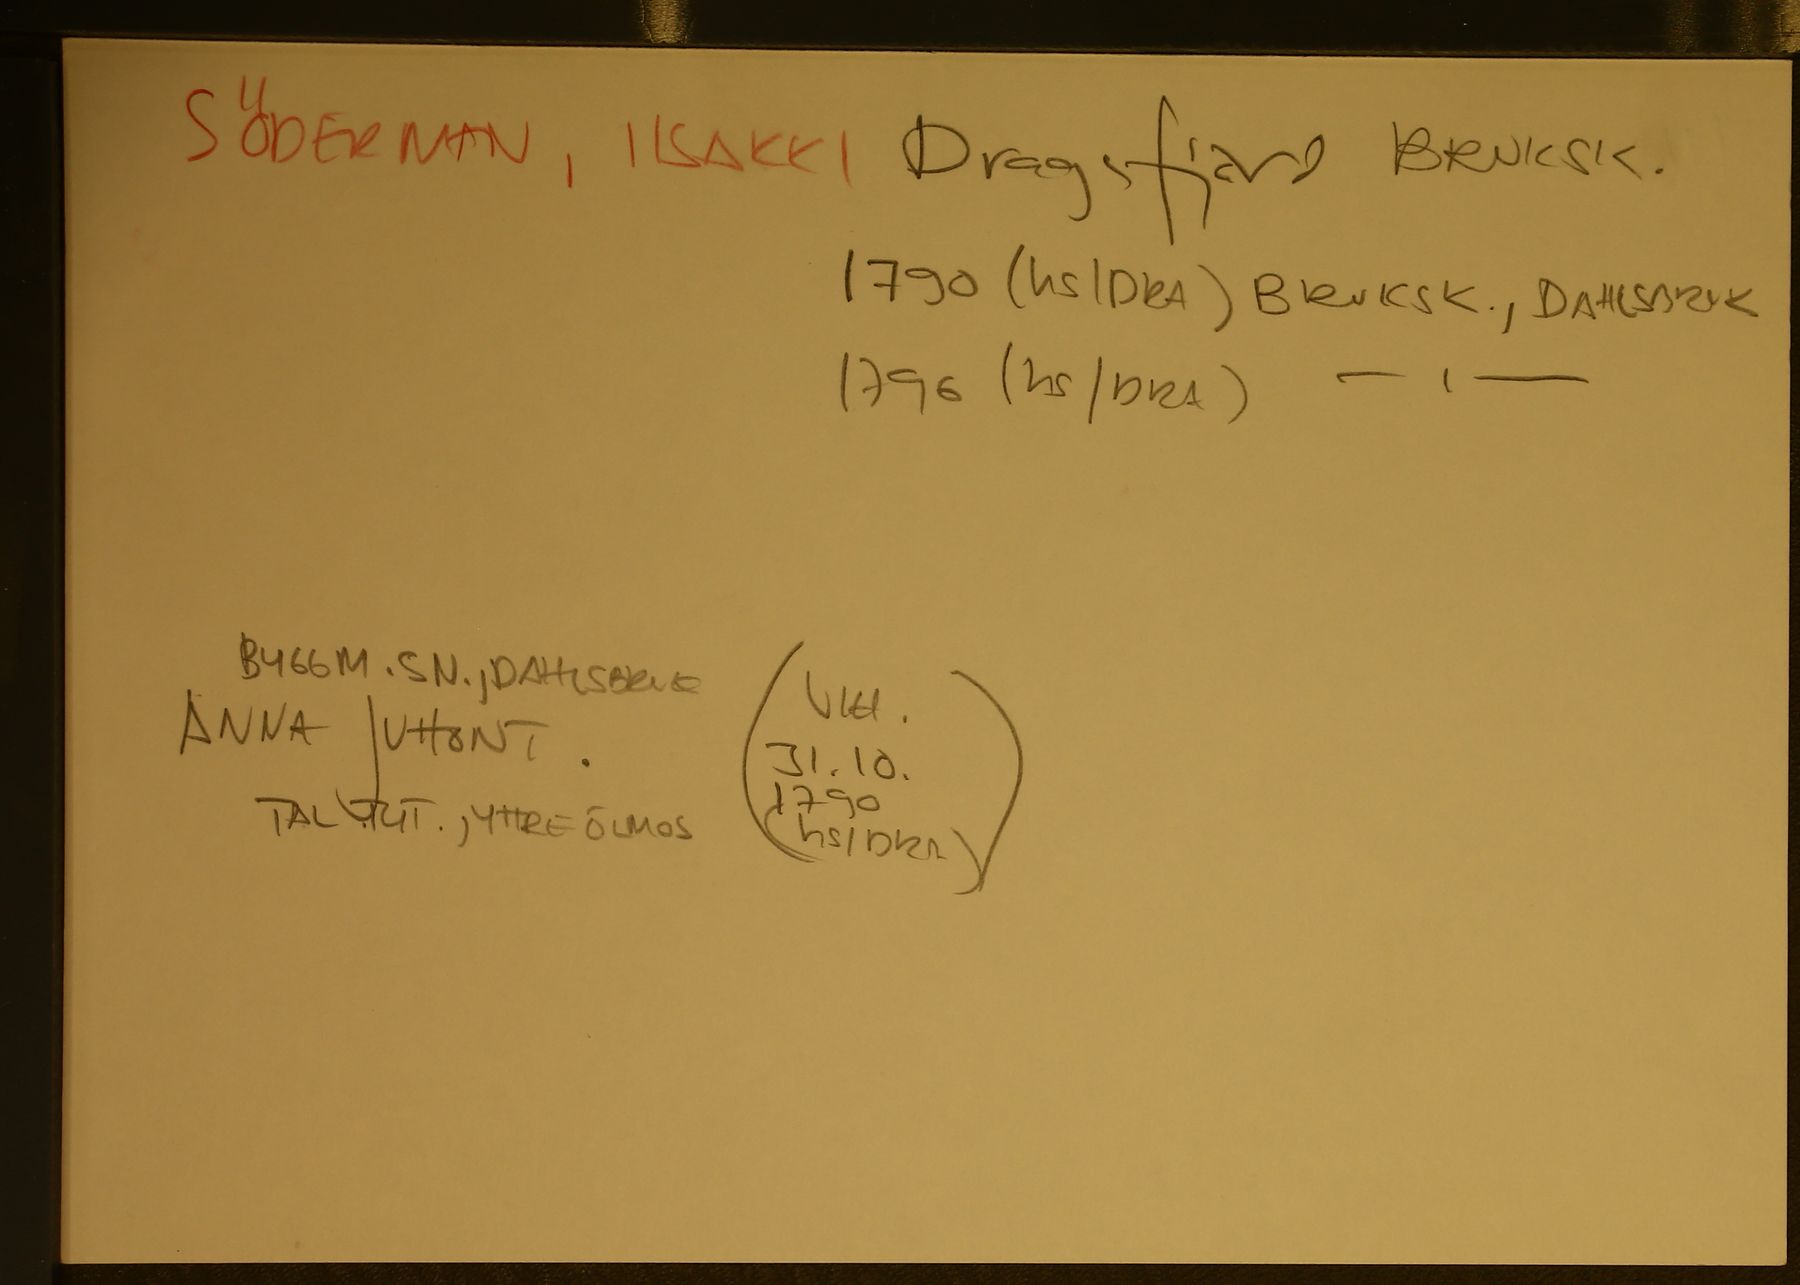 SÖDERMAN, IISAKKI Dragsfjärd BRUKSK.
1790 (hs/DRA) BRUKSK., DAHLSBRUK
1796 (hs/DRA) — ı —
BYGGM.SN., DAHLSBRUK
ANNA JUHONT.
TAL.TYT., YTTRE ÖLMOS
VIH.
31.10.
1790
(hs/DRA)